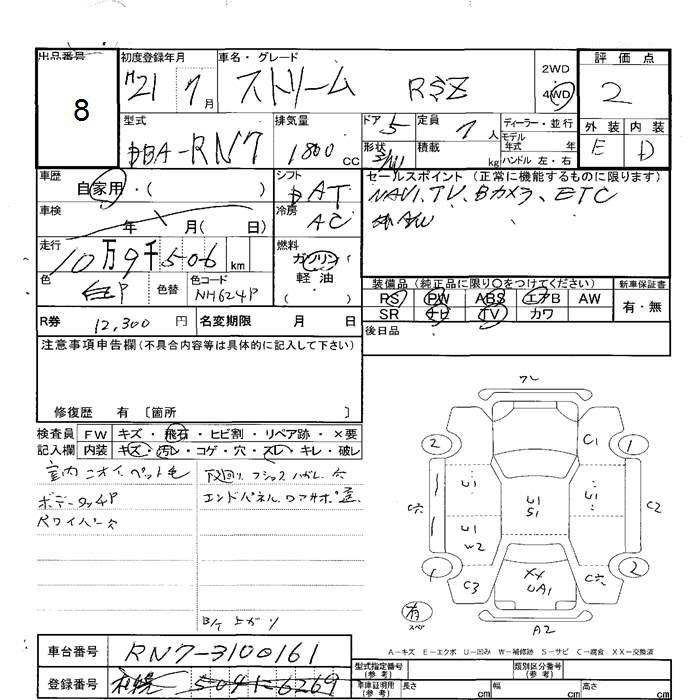 出品番号 初度登録年月 車名・グレード 2WD 評価点
8 H21 7月 ストリーム RSZ 4WD 2
型式 排気量 ドア 5 定員 7人 ディーラー・並行 外装 内装
DBA-RN7 1800cc 形状 5/W 積載 kg モデル年式 年 E D
ハンドル 左・右
車歴 シフト セールスポイント (正常に機能するものに限ります)
自家用・( ) DAT NAVI、TV、Bカメラ、ETC
車検 冷房 社外AW
年 月( 日) AC
走行 燃料
10万9千506km ガソリン
軽油
装備品(純正品に限り○をつけてください) 新車保証書
色 色替 色コード PS PW ABS エアB AW 有・無
白P NH624P SR ナビ TV カワ
R券 12,300円 名変期限 月 日 後日品
注意事項申告欄(不具合内容等は具体的に記入して下さい)
修復歴 有 〔箇所 〕
検査員 FW キズ・飛石・ヒビ割・リペア跡・×要
記入欄 内装 キズ・汚レ・コゲ・穴・スレ・キレ・破レ
室内ニオイ、ペット毛 下廻り フロアハガレ、穴
ボデータッチP エンドパネル、ロアサポ
Rワイパー穴
ワレ
2 C1 1
U1 U1 S1
C穴 U1 W2 C2
1 C3 XX UA1 C穴 2
有 スペア
A2
A-キズ E-エクボ U-凹み W-補修跡 S-サビ C-腐食 XX-交換済
車台番号 RN7-3100161
型式指定番号(参考) 類別区分番号(参考)
登録番号 札幌 504 6269
車庫証明用(参考) 長さ cm 幅 cm 高さ cm